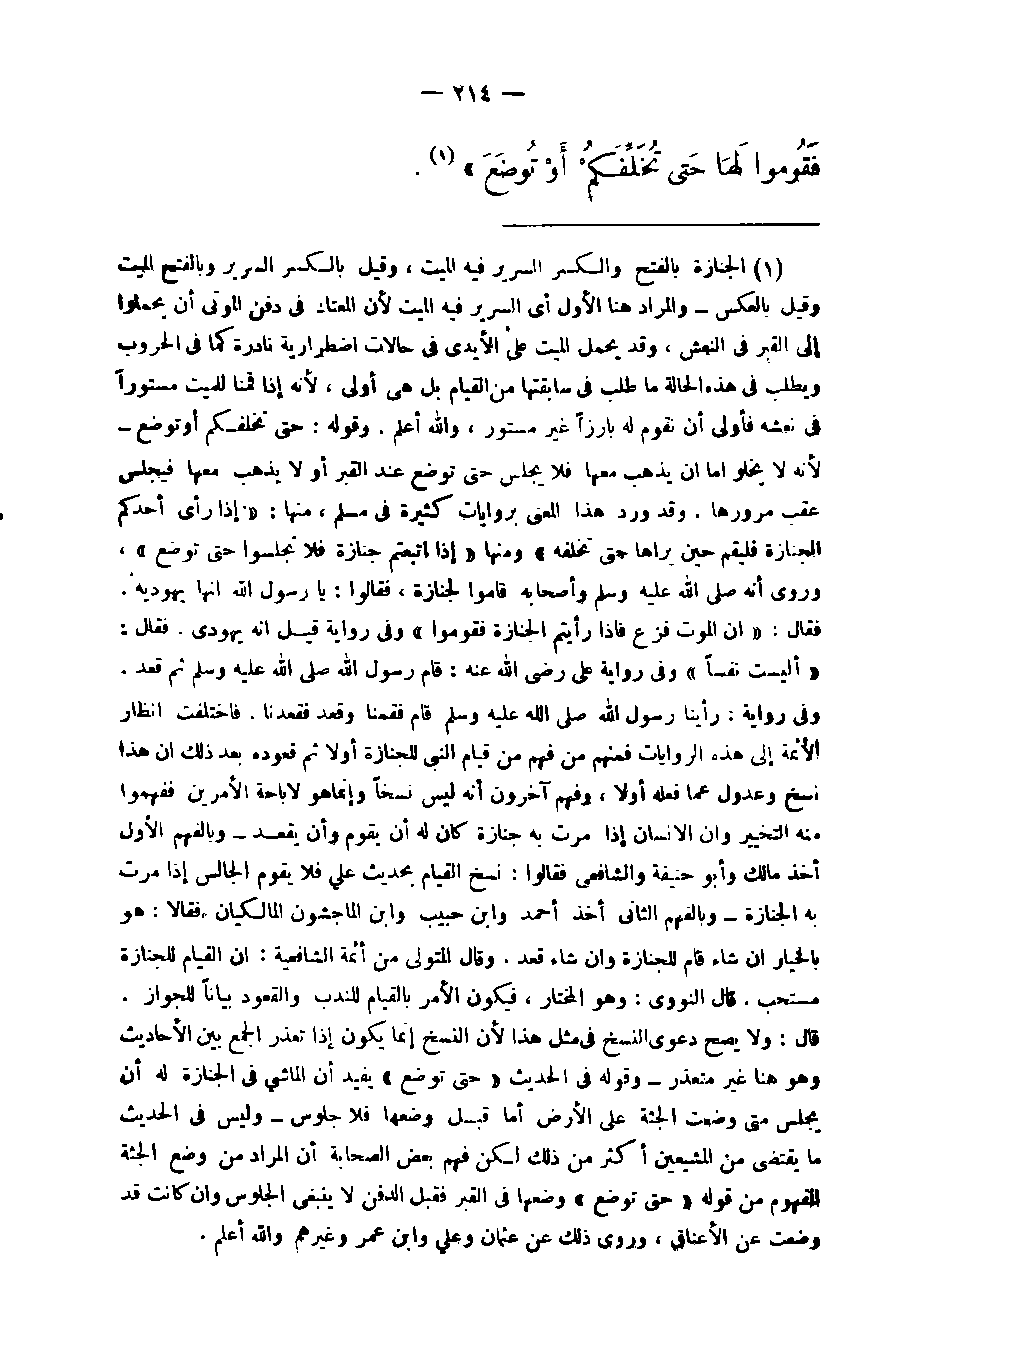 — ٢١٤ —
فَقُومُوا لَهَا حَتى تُخَلِّفَكُمْ أَوْ تُوضَعَ » (١) .
(١) الجنازة بالفتح والكسر السرير فيه الميت ، وقيل بالكسر السرير وبالفتح الميت
وقيل بالعكس – والمراد هنا الأول أى السرير فيه الميت لأن المعتاد فى دفن الموتى أن يحملوا
إلى القبر فى النعش ، وقد يحمل الميت على الأيدى فى حالات اضطرارية نادرة كما فى الحروب
ويطلب فى هذه الحالة ما طلب فى سابقتها من القيام بل هى أولى ، لأنه إذا قمنا للميت مستوراً
فى نعشه فأولى أن نقوم له بارزاً غير مستور ، والله أعلم . وقوله : حتى تخلفكم أو توضع –
لأنه لا يخلو اما ان يذهب معها فلا يجلس حتى توضع عند القبر أو لا يذهب معها فيجلس
عقب مرورها . وقد ورد هذا المعنى بروايات كثيرة فى مسلم ، منها : « إذا رأى أحدكم
الجنازة فليقم حين يراها حتى تخلفه » ومنها « إذا اتبعتم جنازة فلا تجلسوا حتى توضع » ،
وروى أنه صلى الله عليه وسلم وأصحابه قاموا لجنازة ، فقالوا : يا رسول الله انها يهودية .
فقال : « ان الموت فزع فاذا رأيتم الجنازة فقوموا » وفى رواية قيل انه يهودى . فقال :
« أليست نفساً » وفى رواية على رضى الله عنه : قام رسول الله صلى الله عليه وسلم ثم قعد .
وفى رواية : رأينا رسول الله صلى الله عليه وسلم قام فقمنا وقعد فقعدنا . فاختلفت انظار
الأئمة إلى هذه الروايات فمنهم من فهم من قيام النبى للجنازة أولا ثم قعوده بعد ذلك ان هذا
نسخ وعدول عما فعله أولا ، وفهم آخرون أنه ليس نسخاً وإنما هو لاباحة الأمرين ففهموا
منه التخيير وان الانسان إذا مرت به جنازة كان له أن يقوم وأن يقعد – وبالفهم الأول
أخذ مالك وأبو حنيفة والشافعى فقالوا : نسخ القيام بحديث علي فلا يقوم الجالس إذا مرت
به الجنازة – وبالفهم الثانى أخذ أحمد وابن حبيب وابن الماجشون المالكيان ، فقالا : هو
بالخيار ان شاء قام للجنازة وان شاء قعد . وقال المتولى من أئمة الشافعية : ان القيام للجنازة
مستحب . قال النووى : وهو المختار ، فيكون الأمر بالقيام للندب والقعود بياناً للجواز .
قال : ولا يصح دعوى النسخ فى مثل هذا لأن النسخ إنما يكون إذا تعذر الجمع بين الأحاديث
وهو هنا غير متعذر – وقوله فى الحديث « حتى توضع » يفيد أن الماشي فى الجنازة له أن
يجلس متى وضعت الجثة على الأرض أما قبل وضعها فلا جلوس – وليس فى الحديث
ما يقتضى من المشيعين أكثر من ذلك لكن فهم بعض الصحابة أن المراد من وضع الجثة
المفهوم من قوله « حتى توضع » وضعها فى القبر فقبل الدفن لا ينبغى الجلوس وان كانت قد
وضعت عن الأعناق ، وروى ذلك عن عثمان وعلي وابن عمر وغيرهم والله أعلم .